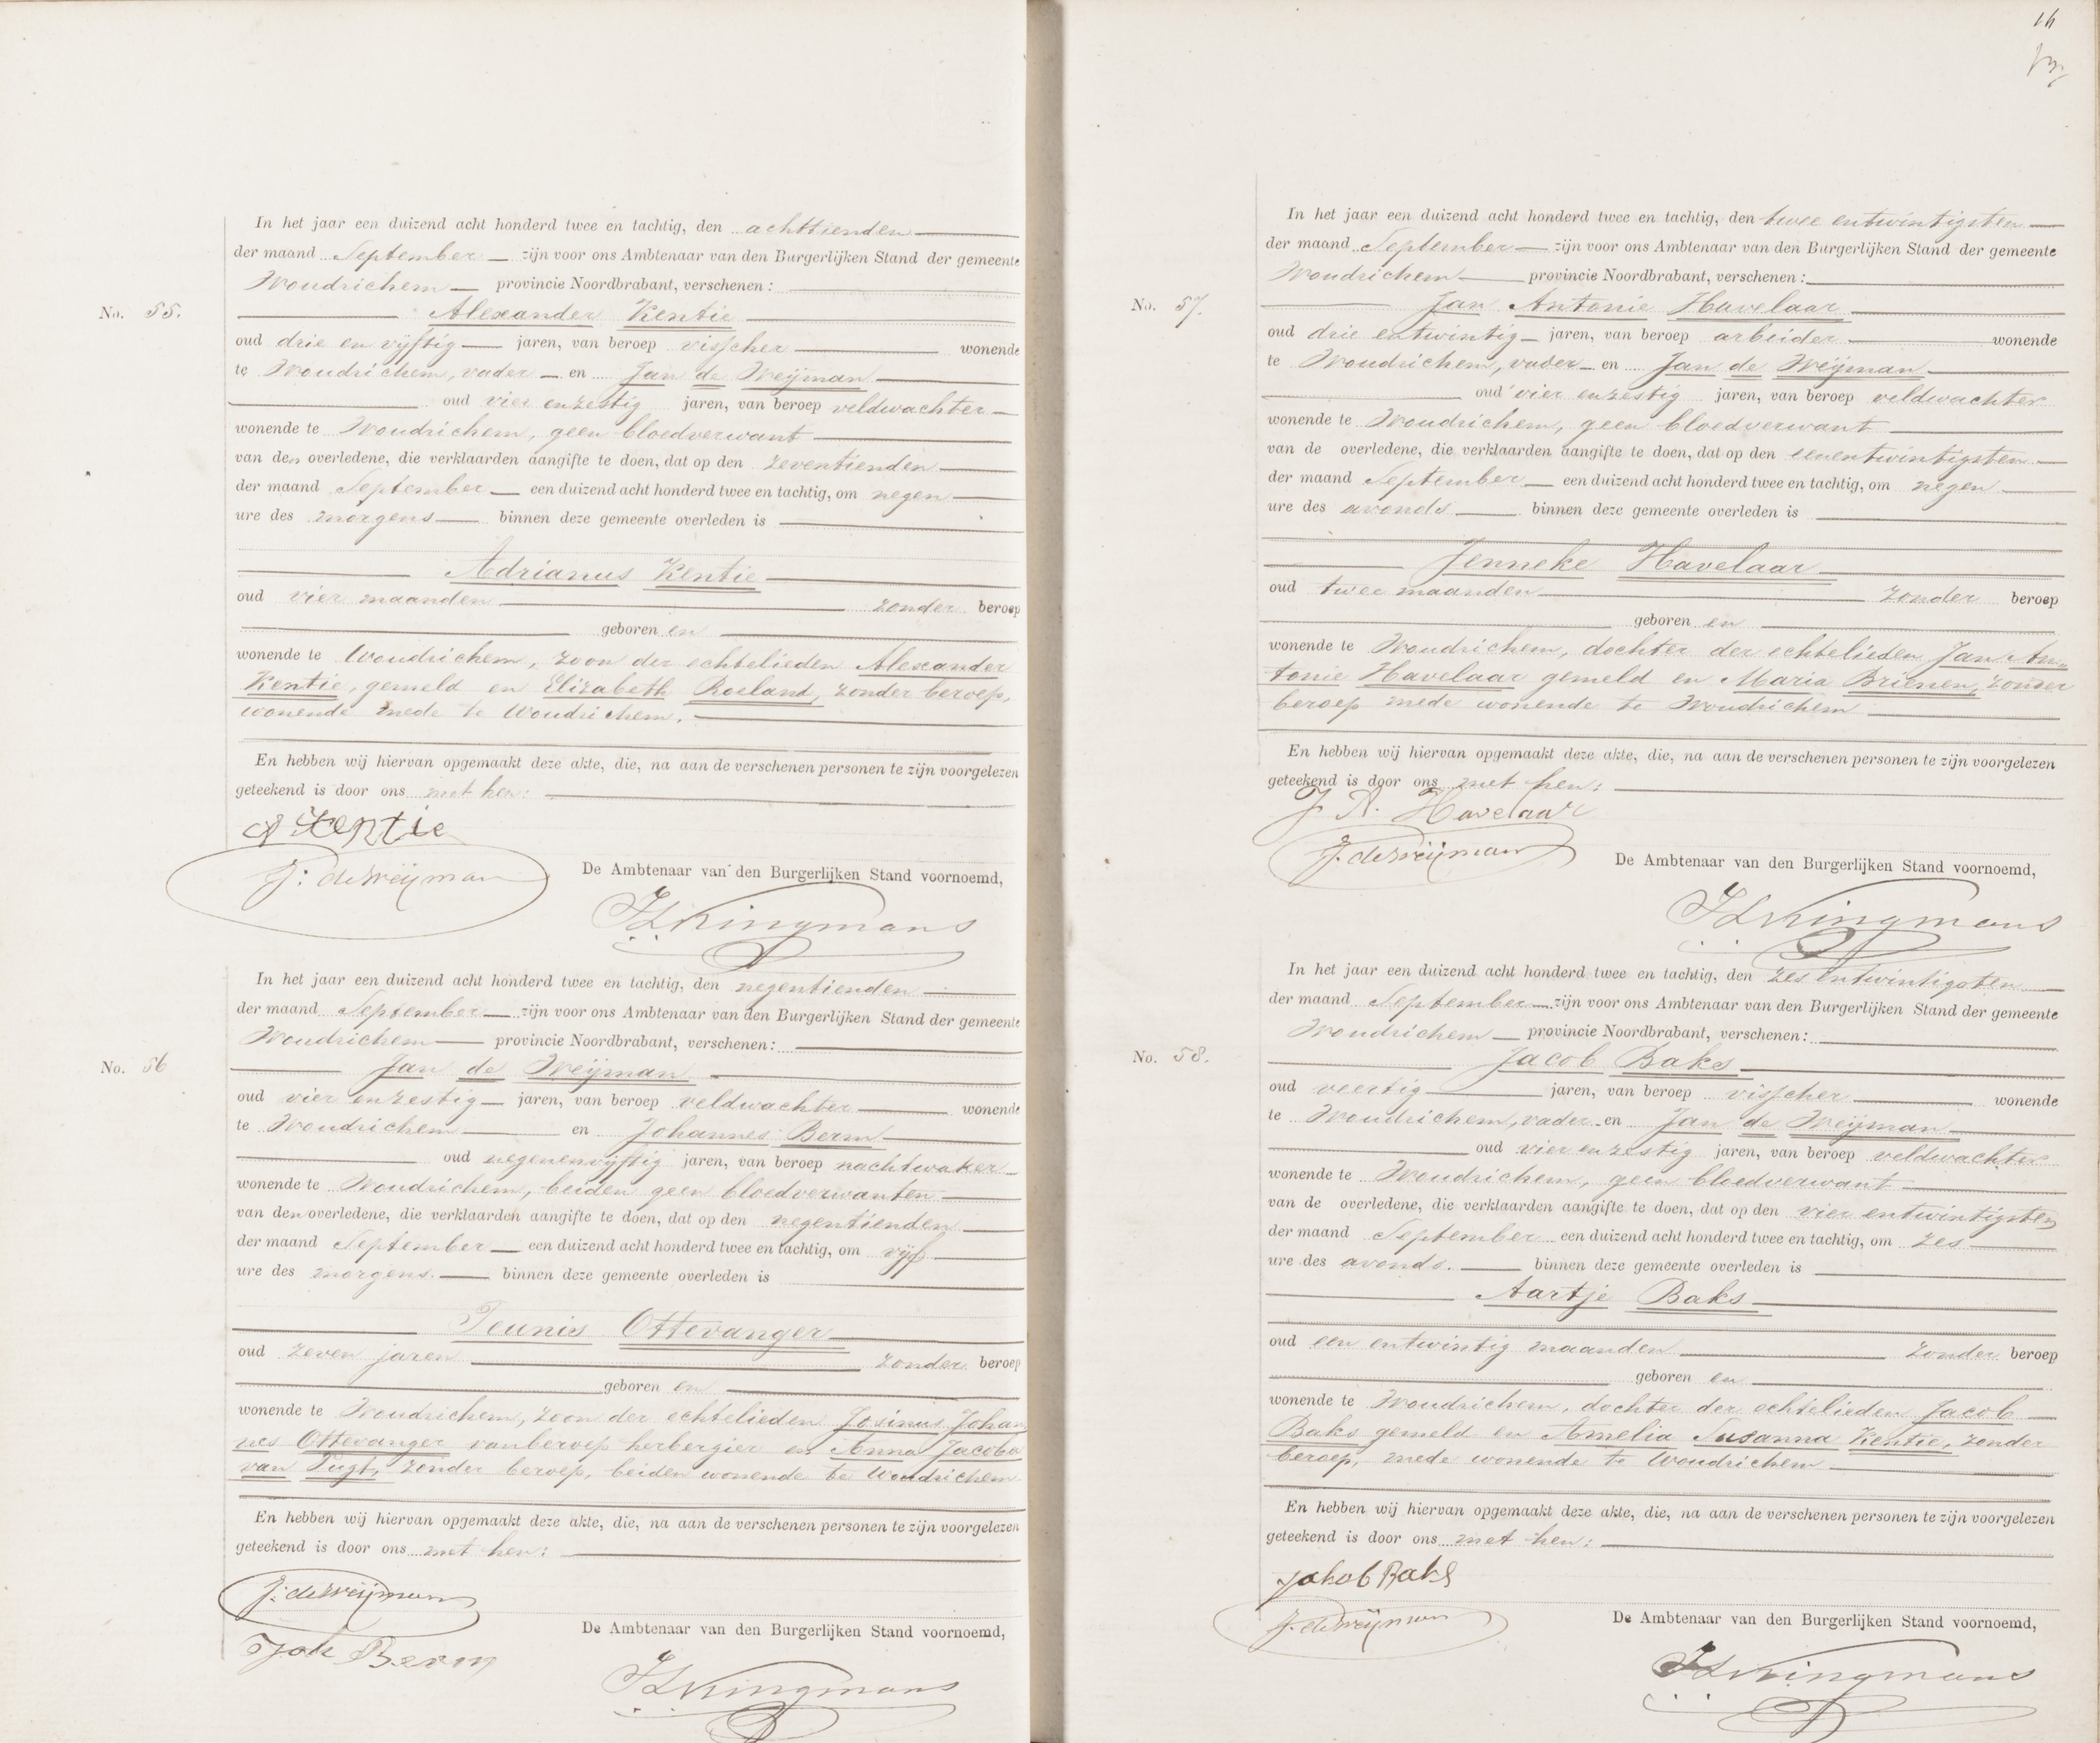 In het jaar een duizend acht honderd twee en tachtig, den achttienden
der maand September zijn voor ons Ambtenaar van den Burgerlijken Stand der gemeente
Woudrichem provincie Noordbrabant, verschenen:
No. 55.
Alexander Kentie
oud drie en vijftig jaren, van beroep visscher wonende
te Woudrichem, vader en Jan de Weijman
oud vier enzestig jaren, van beroep veldwachter
wonende te Woudrichem, geen bloedverwant
van den overledene, die verklaarden aangifte te doen, dat op den zeventienden
der maand September een duizend acht honderd twee en tachtig, om negen
ure des morgens binnen deze gemeente overleden is
Adrianus Kentie
oud vier maanden zonder beroep
geboren en
wonende te Woudrichem, zoon der echtelieden Alexander
Kentie, gemeld en Elizabeth Roeland, zonder beroep,
wonende mede te Woudrichem.
En hebben wij hiervan opgemaakt deze akte, die, na aan de verschenen personen te zijn voorgelezen
geteekend is door ons met hen:
A Kentie
J: de Weijman
De Ambtenaar van den Burgerlijken Stand voornoemd,
In het jaar een duizend acht honderd twee en tachtig, den negentienden
der maand September zijn voor ons Ambtenaar van den Burgerlijken Stand der gemeente
Woudrichem provincie Noordbrabant, verschenen:
No. 56
Jan de Weijman
oud vier enzestig jaren, van beroep veldwachter wonende
te Woudrichem en Johannes Berm
oud negenenvijftig jaren, van beroep nachtwaker
wonende te Woudrichem, beiden geen bloedverwanten
van den overledene, die verklaarden aangifte te doen, dat op den negentienden
der maand September een duizend acht honderd twee en tachtig, om vijf
ure des morgens. binnen deze gemeente overleden is
Teunis Ottevanger
oud zeven jaren zonder beroep
geboren en
wonende te Woudrichem, zoon der echtelieden Josinus Johan
nes Ottevanger van beroep herbergier en Anna Jacoba
van Tugt, zonder beroep, beiden wonende te Woudrichem
En hebben wij hiervan opgemaakt deze akte, die, na aan de verschenen personen te zijn voorgelezen
geteekend is door ons met hen:
J: de Weijman
Joh Berm
De Ambtenaar van den Burgerlijken Stand voornoemd,
In het jaar een duizend acht honderd twee en tachtig, den twee entwintigsten
der maand September zijn voor ons Ambtenaar van den Burgerlijken Stand der gemeente
Woudrichem provincie Noordbrabant, verschenen:
No. 57.
Jan Antonie Havelaar
oud drie entwintig jaren, van beroep arbeider wonende
te Woudrichem, vader en Jan de Weijman
oud vier enzestig jaren, van beroep veldwachter
wonende te Woudrichem, geen bloedverwant
van de overledene, die verklaarden aangifte te doen, dat op den eenentwintigsten
der maand September een duizend acht honderd twee en tachtig, om negen
ure des avonds binnen deze gemeente overleden is
Jenneke Havelaar
oud twee maanden zonder beroep
geboren en
wonende te Woudrichem, dochter der echtelieden Jan An„
tonie Havelaar gemeld en Maria Brienen, zonder
beroep mede wonende te Woudrichem
En hebben wij hiervan opgemaakt deze akte, die, na aan de verschenen personen te zijn voorgelezen
geteekend is door ons met hen:
J A. Havelaar
J. de Weijman
De Ambtenaar van den Burgerlijken Stand voornoemd,
In het jaar een duizend acht honderd twee en tachtig, den zes entwintigsten
der maand September zijn voor ons Ambtenaar van den Burgerlijken Stand der gemeente
Woudrichem provincie Noordbrabant, verschenen:
No. 58.
Jacob Baks
oud veertig jaren, van beroep visscher wonende
te Woudrichem, vader en Jan de Weijman
oud vier enzestig jaren, van beroep veldwachter
wonende te Woudrichem, geen bloedverwant
van de overledene, die verklaarden aangifte te doen, dat op den vier entwintigsten
der maand September een duizend acht honderd twee en tachtig, om zes
ure des avonds. binnen deze gemeente overleden is
Aartje Baks
oud een entwintig maanden zonder beroep
geboren en
wonende te Woudrichem, dochter der echtelieden Jacob
Baks gemeld en Amelia Susanna Kentie, zonder
beroep, mede wonende te Woudrichem
En hebben wij hiervan opgemaakt deze akte, die, na aan de verschenen personen te zijn voorgelezen
geteekend is door ons met hen:
Jakob Baks
J. de Weijman
De Ambtenaar van den Burgerlijken Stand voornoemd,